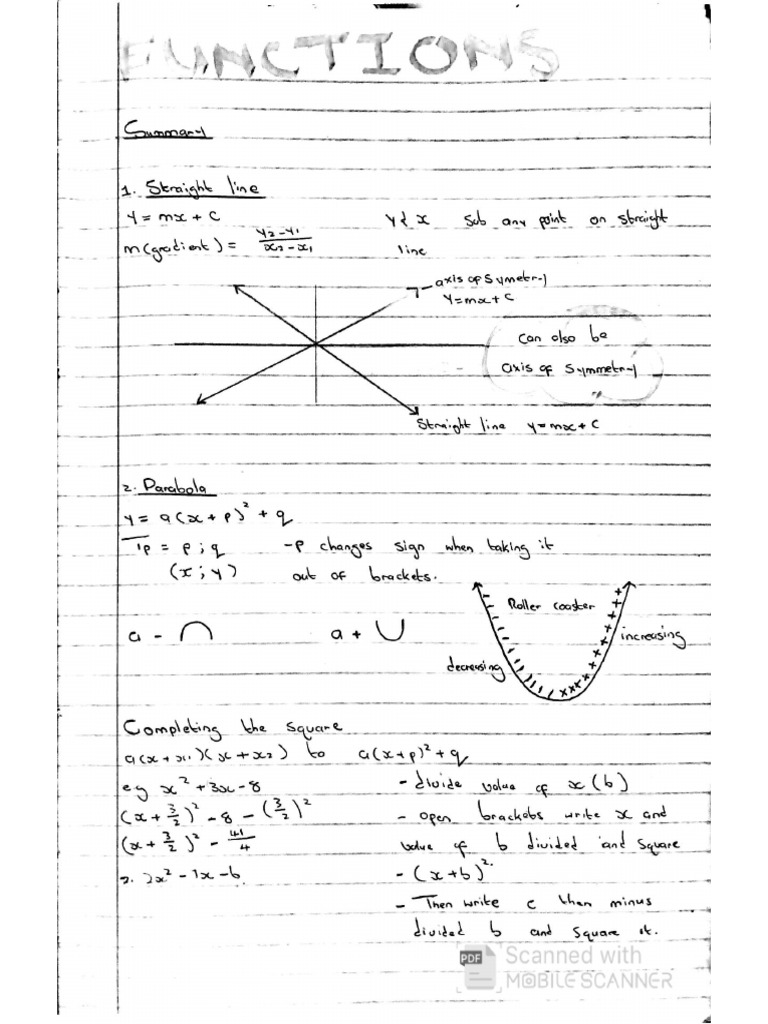 FUNCTIONS
Summary
1. Straight line
y = mx + c
m(gradient) = y2-y1 / x2-x1
y & x sub any point on straight
line
axis of Symetry
y=mx+c
can also be
axis of symmetry
Straight line y=mx+c
2. Parabola
y = a(x+p)² + q
Tp = p ; q
(x ; y)
-p changes sign when taking it
out of brackets.
a -
a +
Roller coaster
decreasing
increasing
Completing the square
a(x+x1)(x+x2) to a(x+p)² + q
eg x² + 3x - 8
(x + 3/2)² - 8 - (3/2)²
(x + 3/2)² - 41/4
- divide value of x (b)
- open brackets write x and
value of b divided and square
- (x+b)².
- Then write c then minus
divided b and square it.
Scanned with
PDF
MOBILE SCANNER